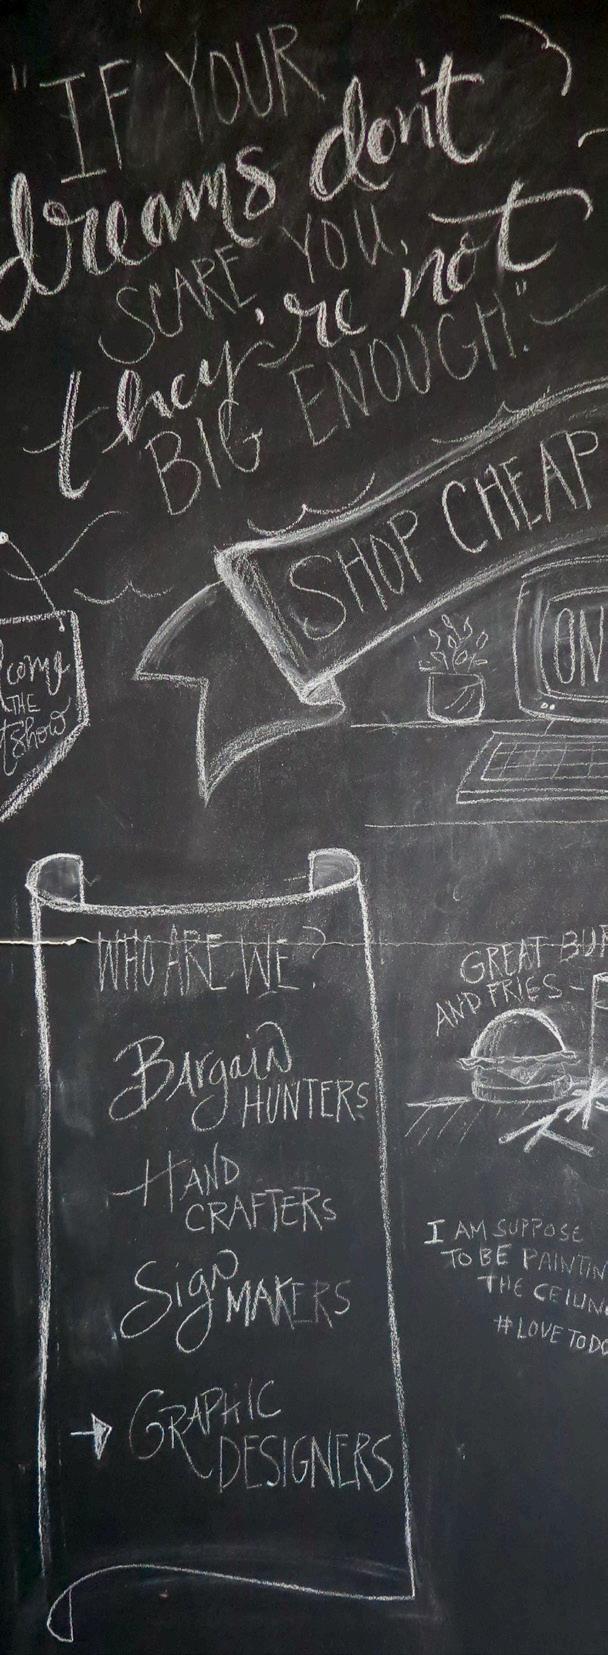 "IF YOUR
dreams don't
SCARE YOU,
they're not
BIG ENOUGH."
SHOP CHEAP
ON
THE
show
WHO ARE WE?
Bargain
HUNTERS
HAND
CRAFTERS
Sign MAKERS
GRAPHIC
DESIGNERS
GREAT BUR
AND FRIES-
I AM SUPPOSE
TO BE PAINTIN
THE CEILIN
#LOVETODO